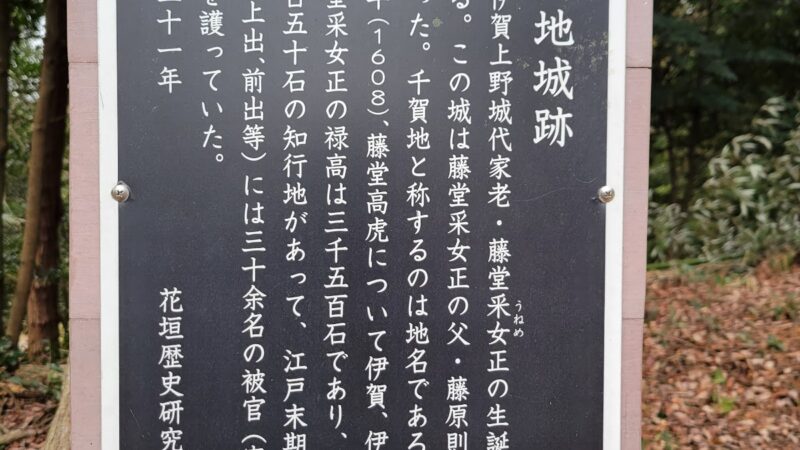 地城跡
伊賀上野城代家老・藤堂采女正の生誕
うねめ
る。この城は藤堂采女正の父・藤原則
った。千賀地と称するのは地名であろ
年(1608)、藤堂高虎について伊賀、伊
堂采女正の禄高は三千五百石であり、
百五十石の知行地があって、江戸末期
上出、前出等)には三十余名の被官(
を護っていた。
二十一年
花垣歴史研究